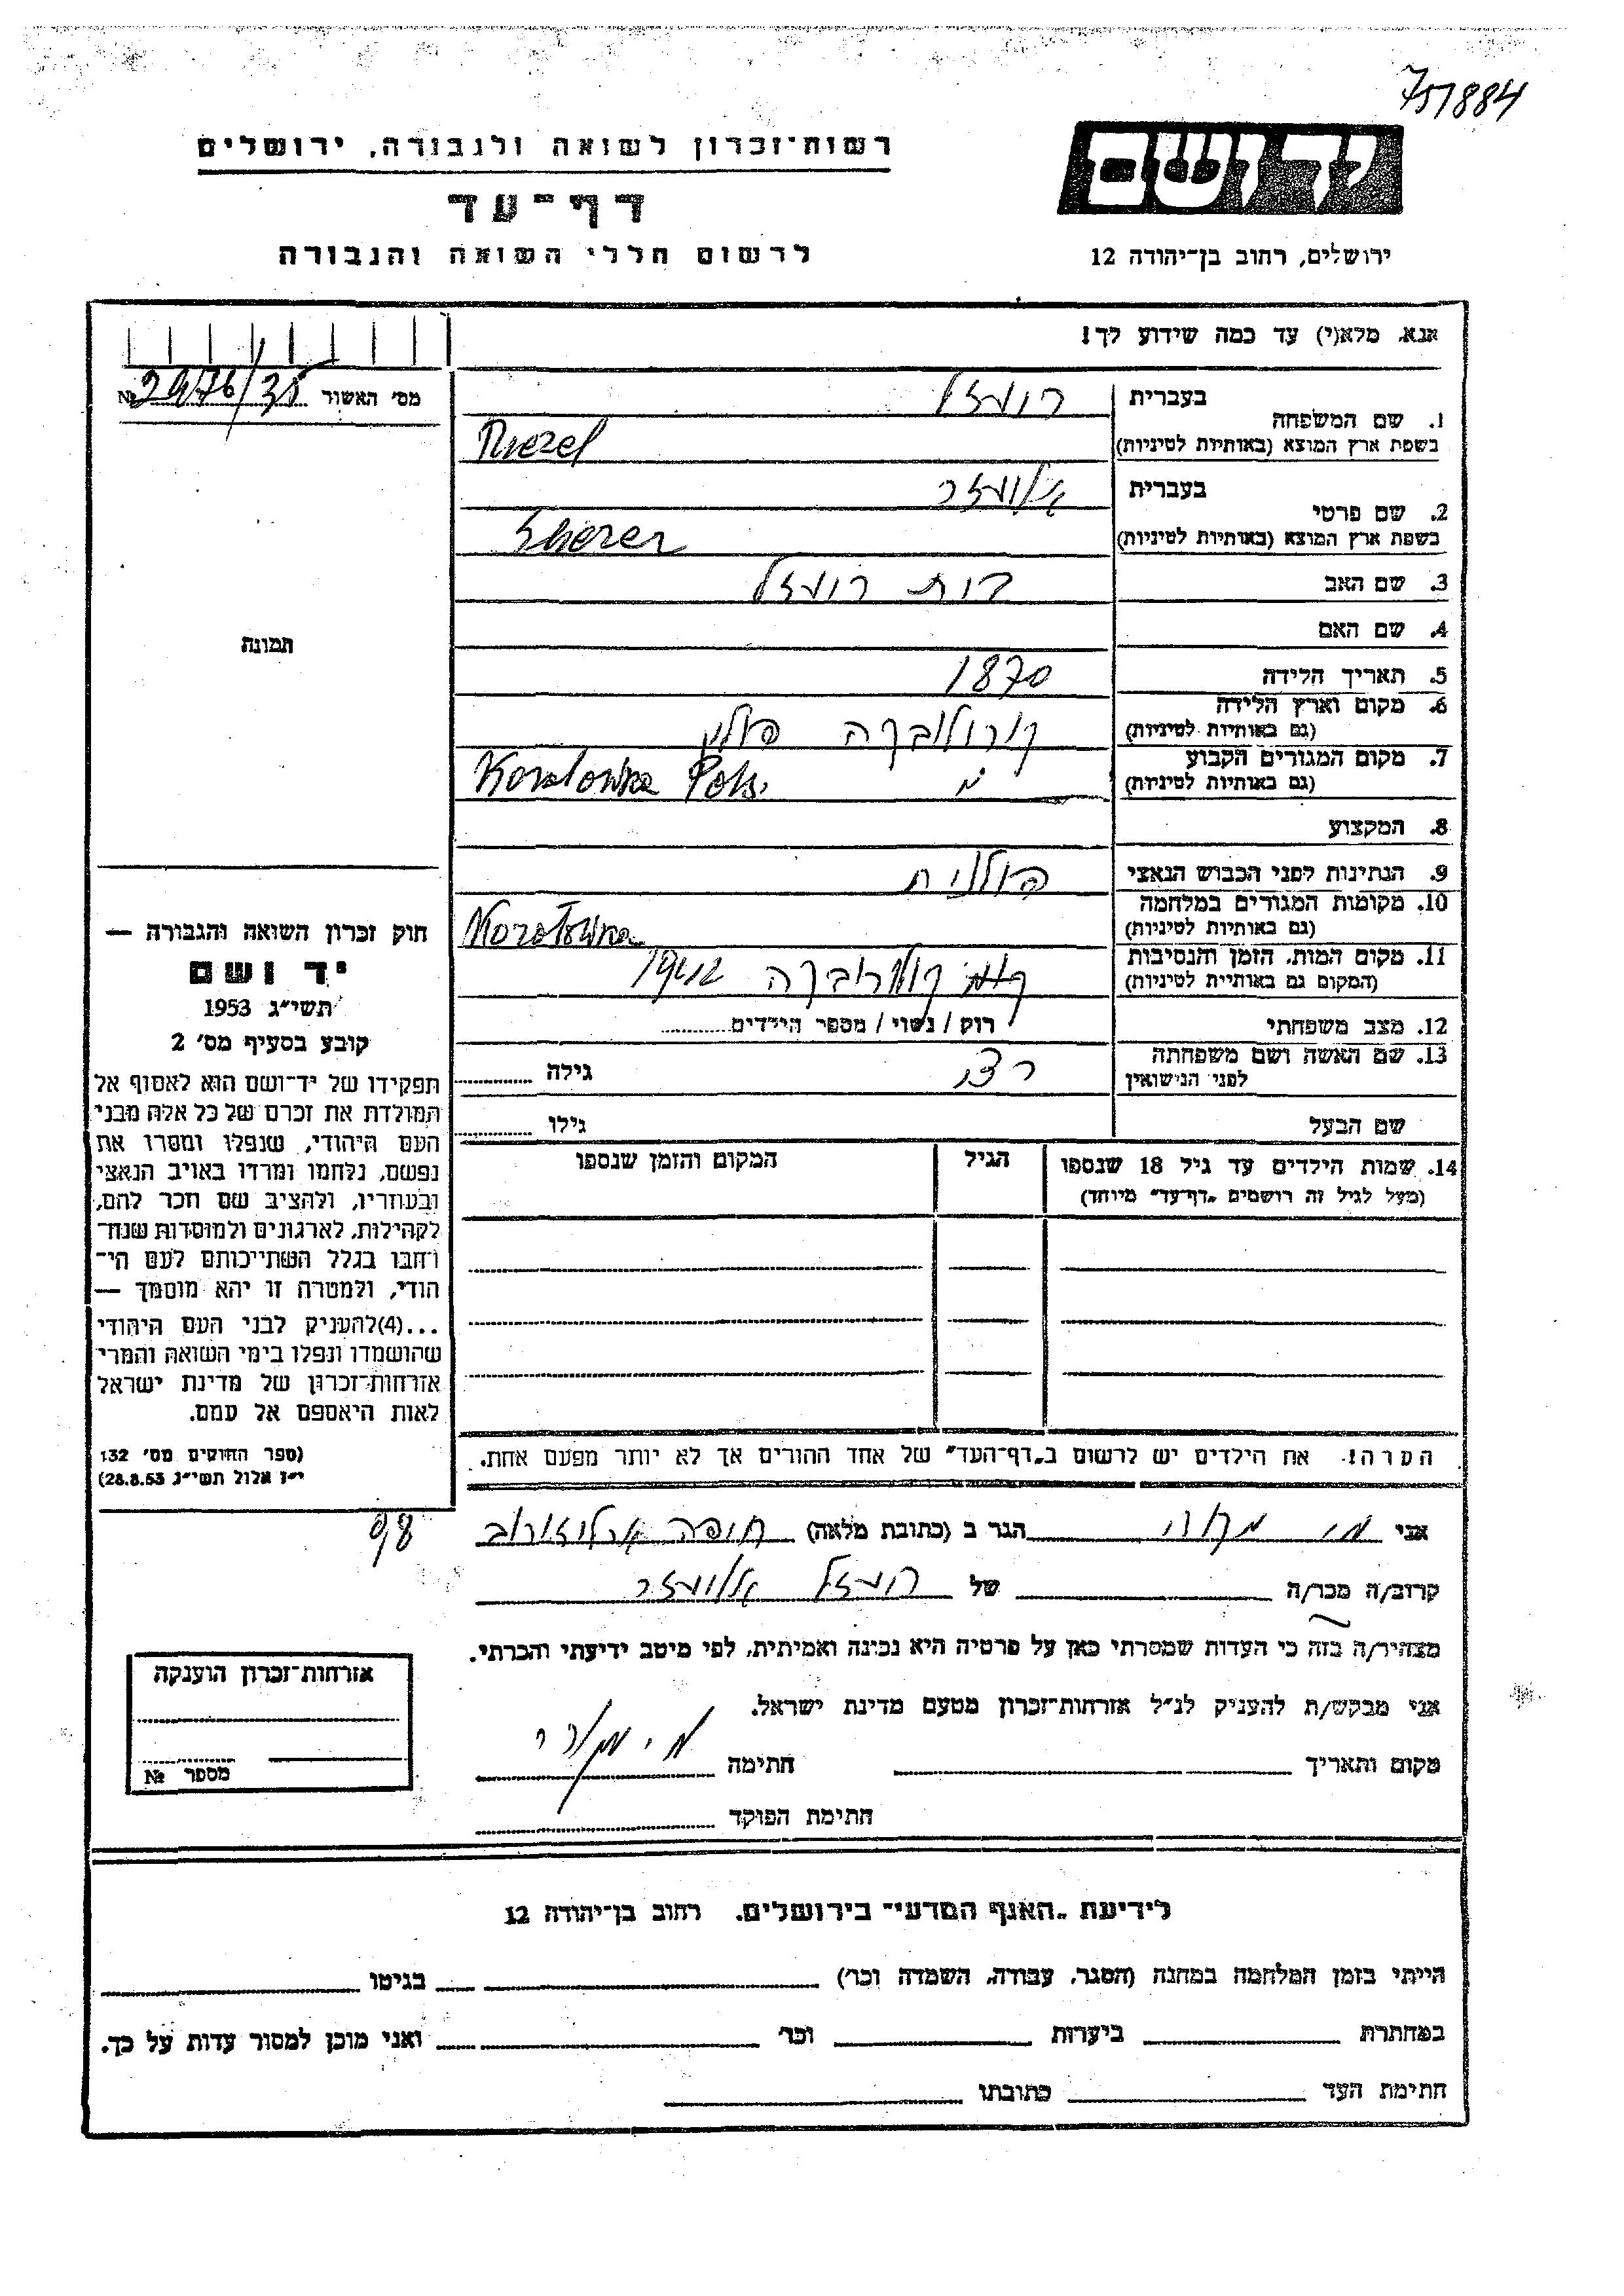 751884
יד ושם
רשות־זכרון לשואה ולגבורה, ירושלים
דף־עד
ירושלים, רחוב בן־יהודה 12
לרשום חללי השואה והגבורה
אנא, מלא(י) עד כמה שידוע לך!
מס׳ האשור 2476/35 №
1. שם המשפחה
בעברית
בשפת ארץ המוצא (באותיות לטיניות)
2. שם פרטי
בעברית
אליעזר
בשפת ארץ המוצא (באותיות לטיניות)
3. שם האב
4. שם האם
תמונה
5. תאריך הלידה 1870
6. מקום וארץ הלידה
(גם באותיות לטיניות)
קורולובקה פולין
7. מקום המגורים הקבוע
(גם באותיות לטיניות)
Korolowka
8. המקצוע
9. הנתינות לפני הכבוש הנאצי פולנית
10. מקומות המגורים במלחמה
(גם באותיות לטיניות)
Korolowka
11. מקום המות, הזמן והנסיבות
(המקום גם באותיות לטיניות)
1942
12. מצב משפחתי רוק / נשוי / מספר הילדים
13. שם האשה ושם משפחתה
לפני הנישואין
גילה
שם הבעל גילו
14. שמות הילדים עד גיל 18 שנספו הגיל המקום והזמן שנספו
(מעל לגיל זה רושמים „דף־עד״ מיוחד)
חוק זכרון השואה והגבורה —
יד ושם
תשי״ג 1953
קובע בסעיף מס׳ 2
תפקידו של יד־ושם הוא לאסוף אל
המולדת את זכרם של כל אלה מבני
העם היהודי, שנפלו ומסרו את
נפשם, נלחמו ומרדו באויב הנאצי
ובעוזריו, ולהציב שם וזכר להם,
לקהילות, לארגונים ולמוסדות שנח־
רחבו בגלל השתייכותם לעם הי־
הודי, ולמטרה זו יהא מוסמך —
...(4)להעניק לבני העם היהודי
שהושמדו ונפלו בימי השואה והמרי
אזרחות־זכרון של מדינת ישראל
לאות היאספם אל עמם.
(ספר החוקים מס׳ 132
י״ז אלול תשי״ג 28.8.53)
הערה: את הילדים יש לרשום ב„דף־העד״ של אחד ההורים אך לא יותר מפעם אחת.
אני הגר ב (כתובת מלאה) חיפה ארלוזורוב 98
קרוב/ה מכר/ה של אליעזר
מצהיר/ה בזה כי העדות שמסרתי כאן על פרטיה היא נכונה ואמיתית, לפי מיטב ידיעתי והכרתי.
אני מבקש/ת להעניק לנ״ל אזרחות־זכרון מטעם מדינת ישראל.
מקום ותאריך חתימה
חתימת הפוקד
אזרחות־זכרון הוענקה
מספר №
לידיעת „האגף המדעי״ בירושלים, רחוב בן־יהודה 12
הייתי בזמן המלחמה במחנה (הסגר, עבודה, השמדה וכר׳) בגיטו
במחתרת ביערות וכר׳ ואני מוכן למסור עדות על כך.
חתימת העד כתובתו